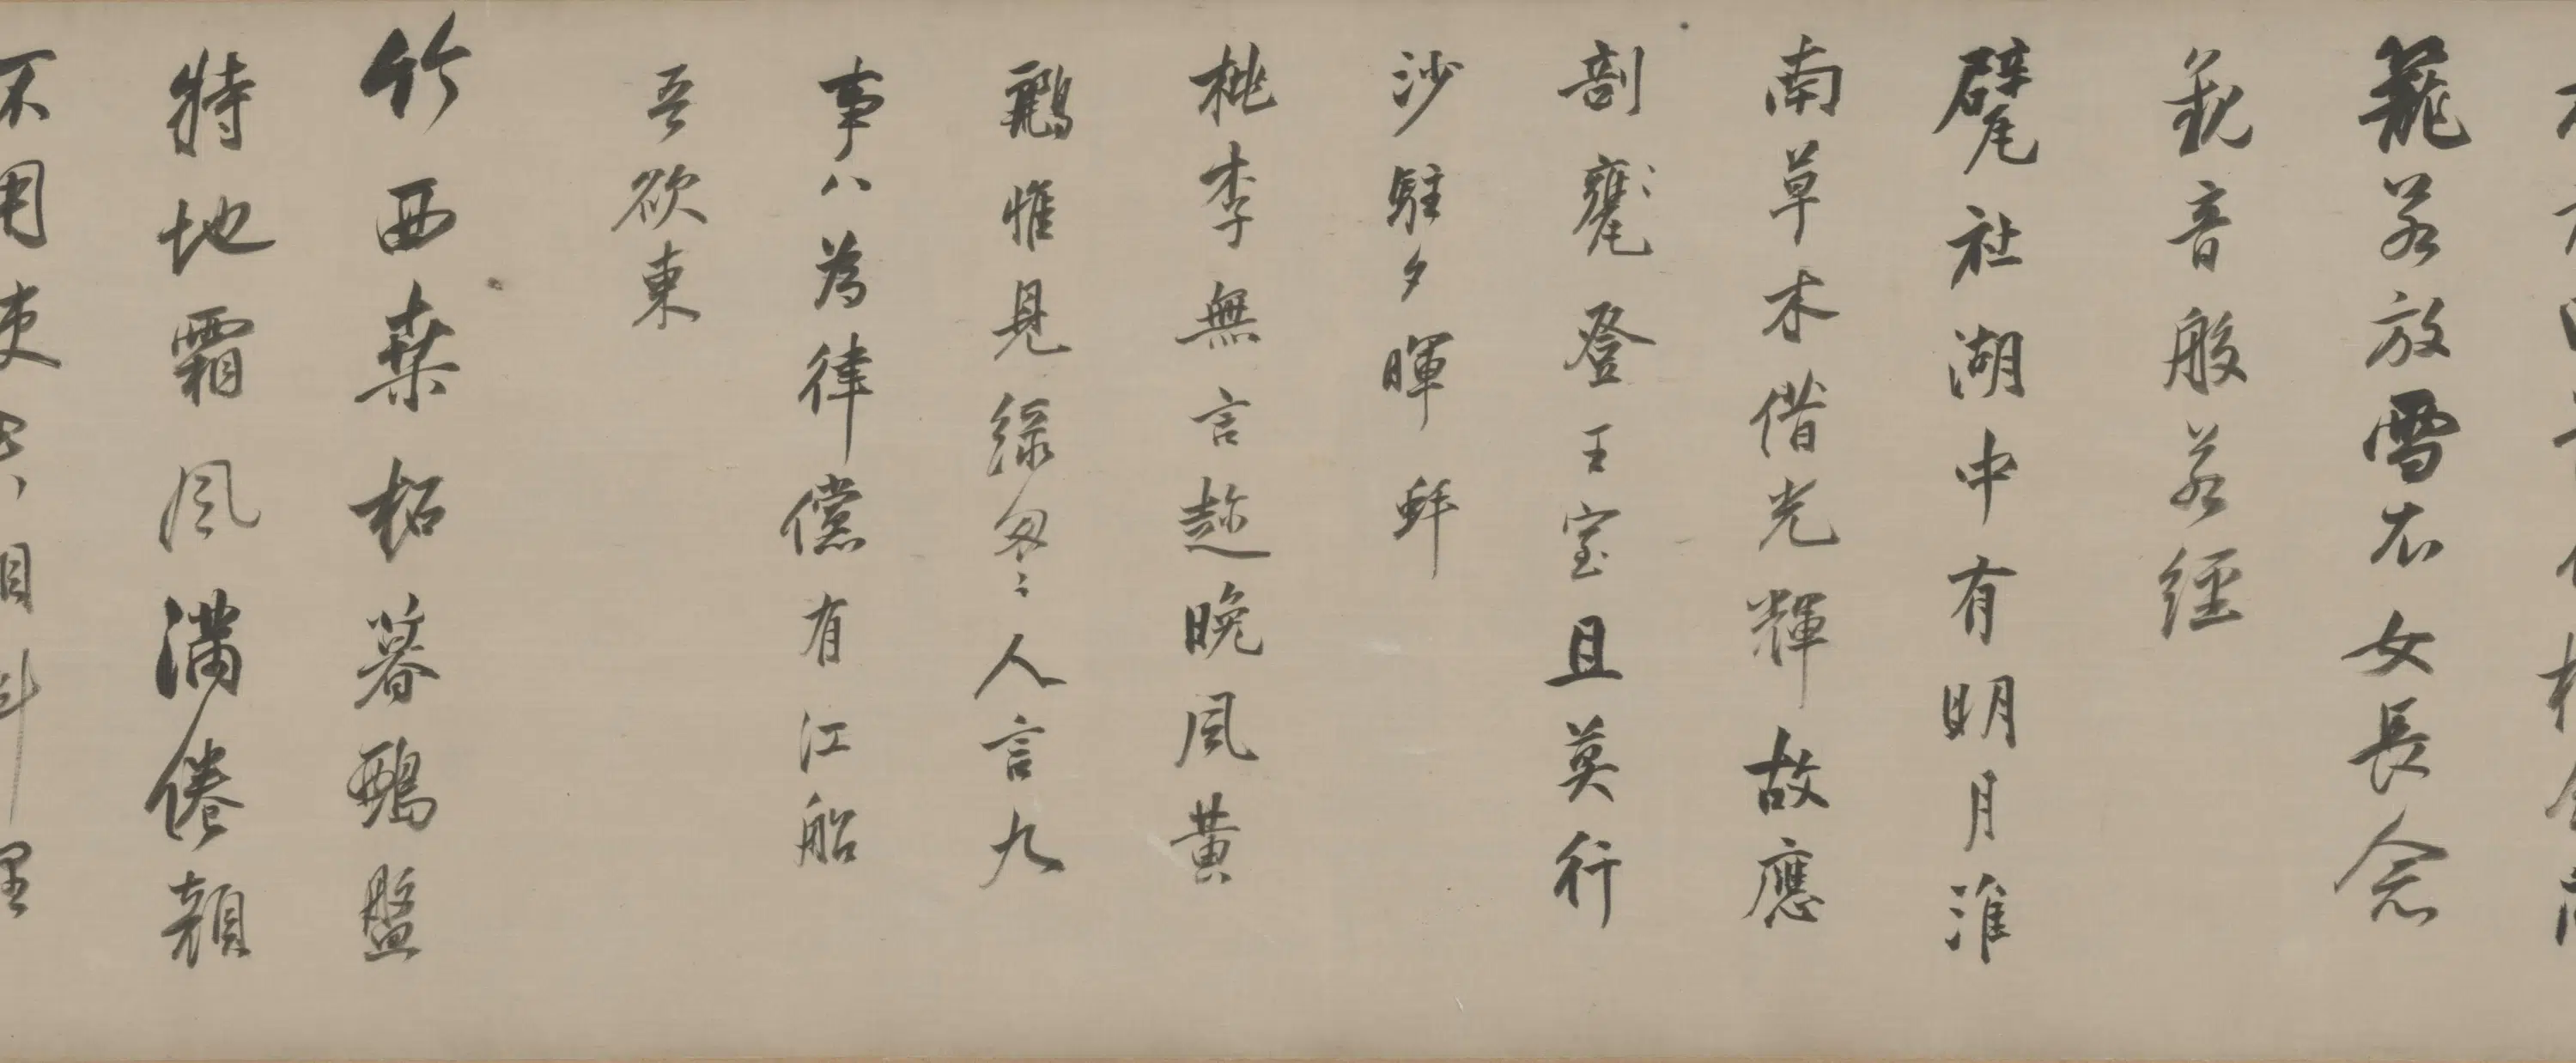 籠若放雪衣女長念
觀音般若經
甓社湖中有明月淮
南草木借光輝故應
剖蚌登王室且莫行
沙駐夕暉
桃李無言趁晚風黃
鸝惟見綠匆〻人言九
事八為律儻有江船
吾欲東
竹西桑柘暮鴉盤
特地霜風滿倦顏
不用使